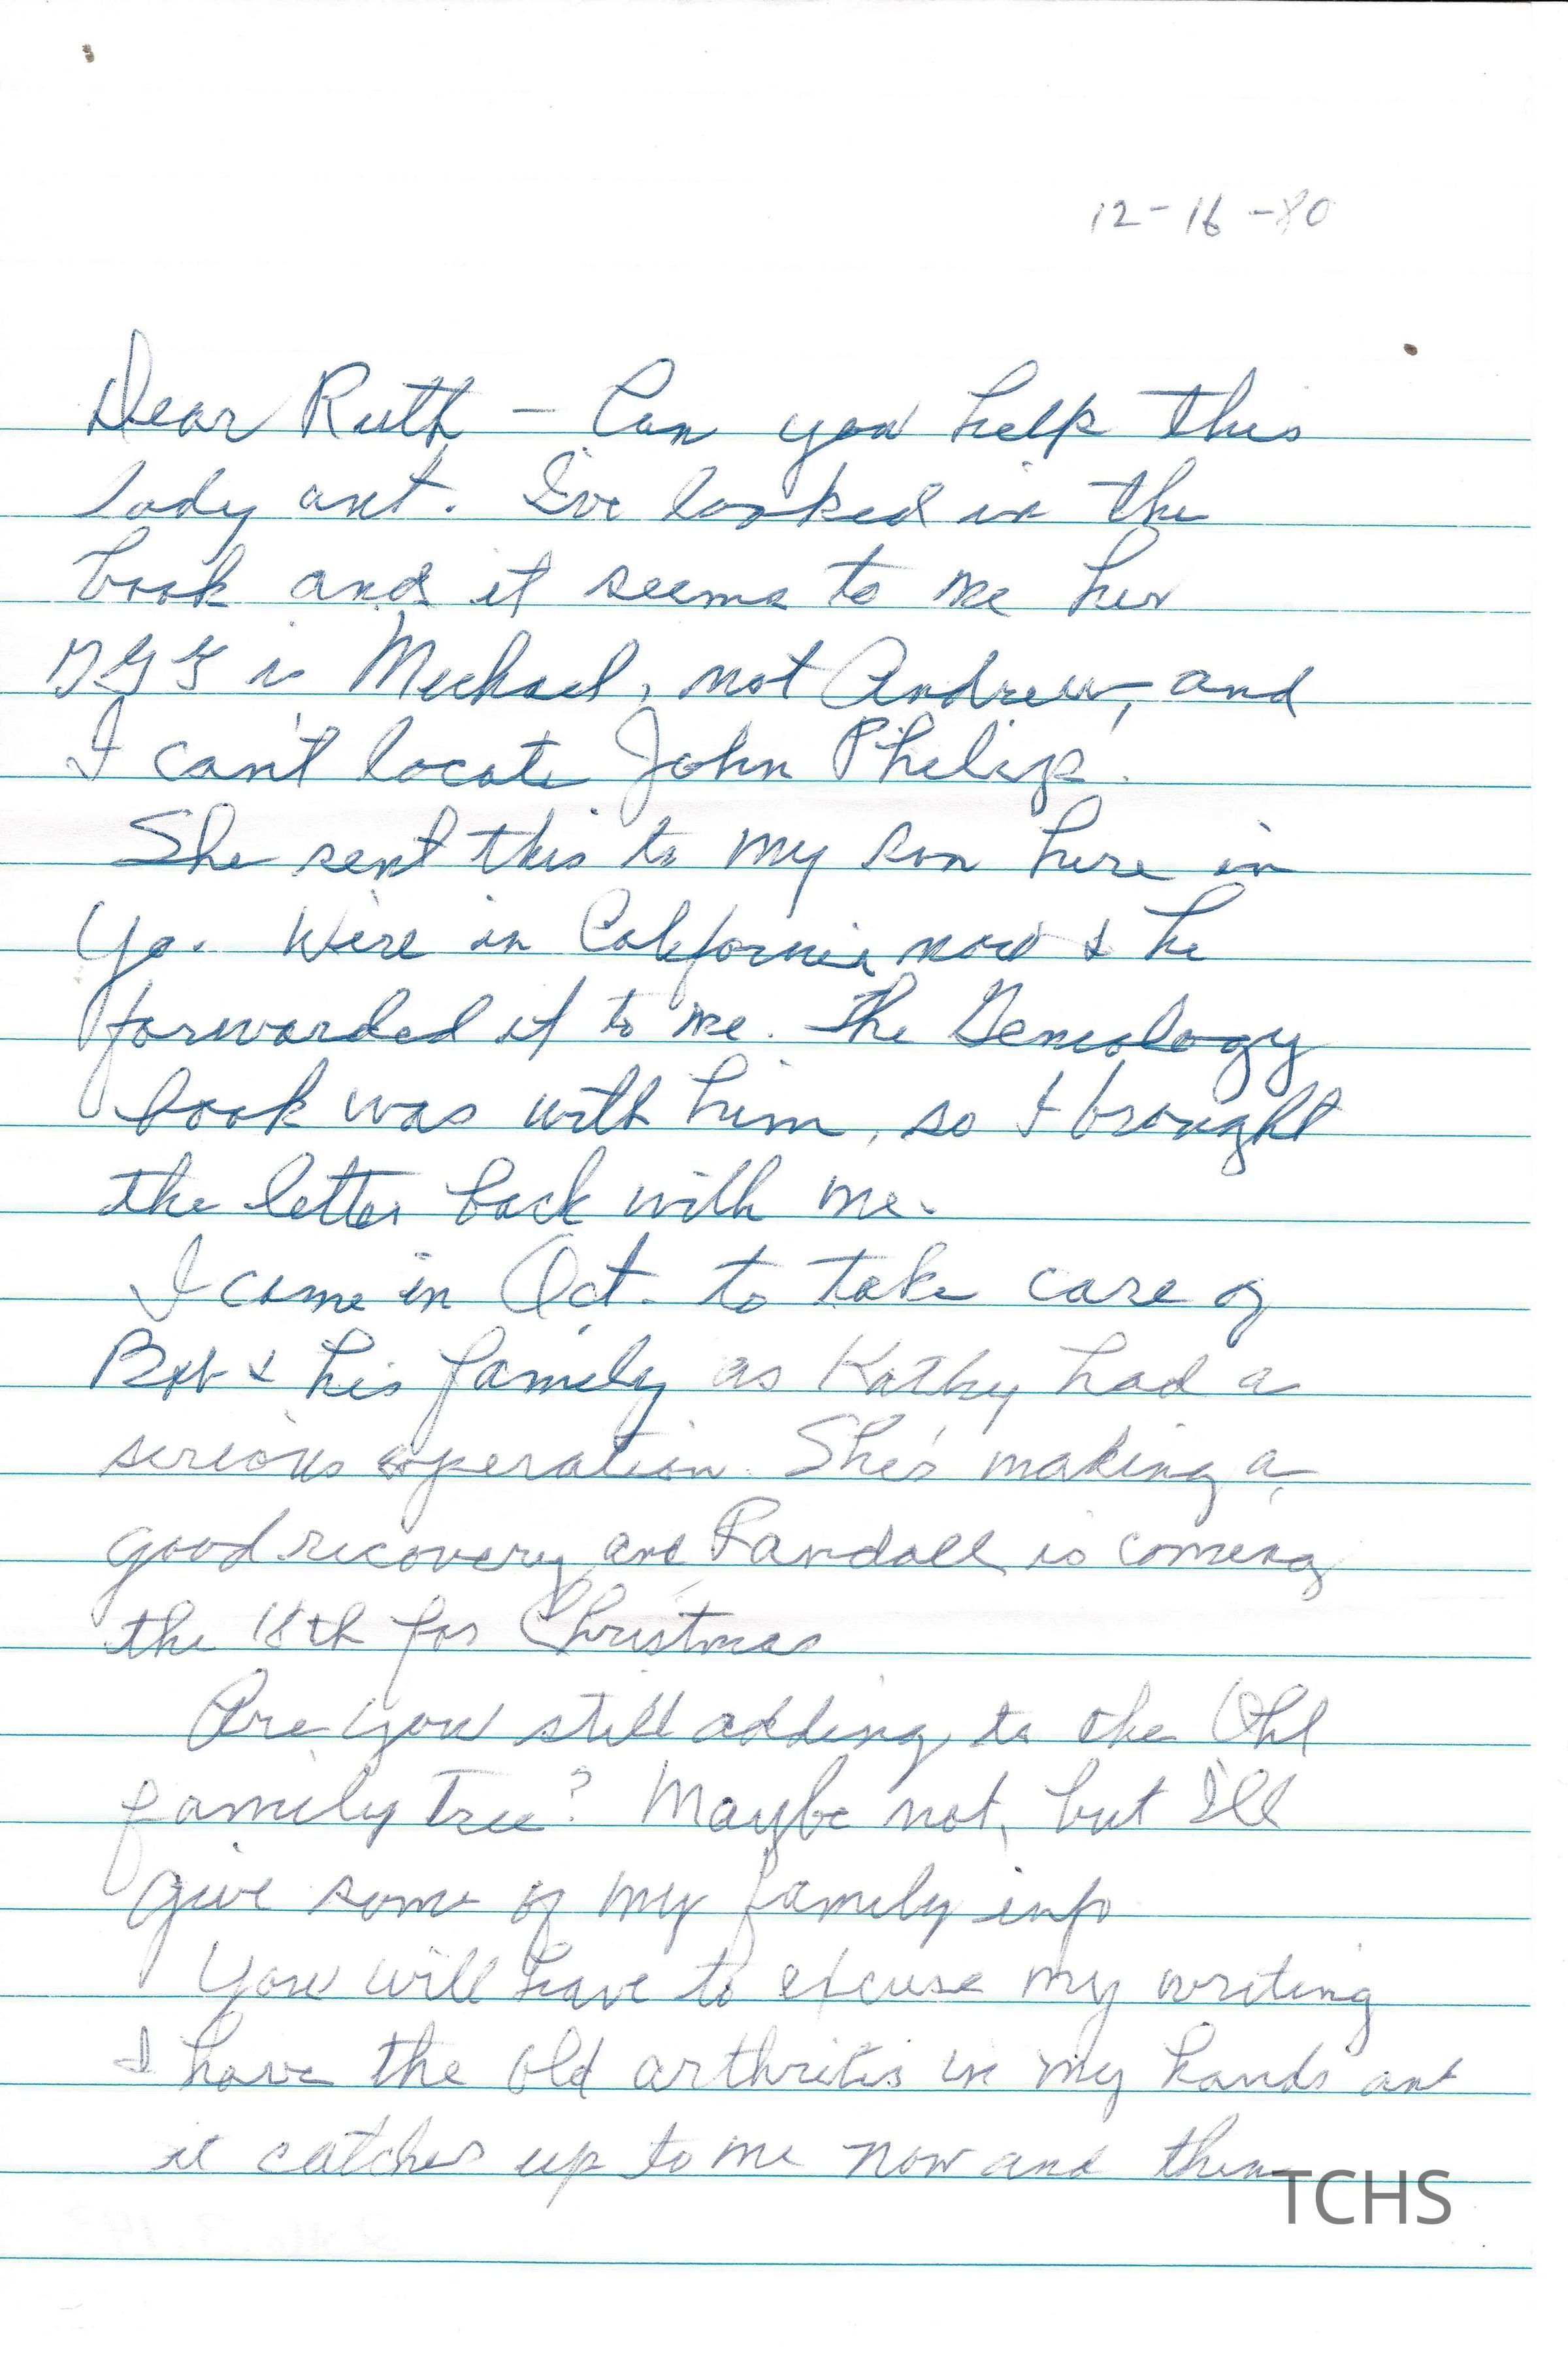 12-16-80
Dear Ruth - Can you help this
lady out. I've looked in the
book and it seems to me her
GGG is Michael, not Andrew, and
I can't locate John Philip.
She sent this to my son here in
Yo. We're in California now & he
forwarded it to me. The Geneology
book was with him, so I brought
the letter back with me.
I came in Oct. to take care of
Bob & his family as Kathy had a
serious operation. She's making a
good recovery and Randall is coming
the 18th for Christmas
Are you still adding to the Ohl
family Tree? Maybe not, but I'll
give some of my family info
You will have to excuse my writing
I have the old arthritis in my hands and
it catches up to me now and then
TCHS